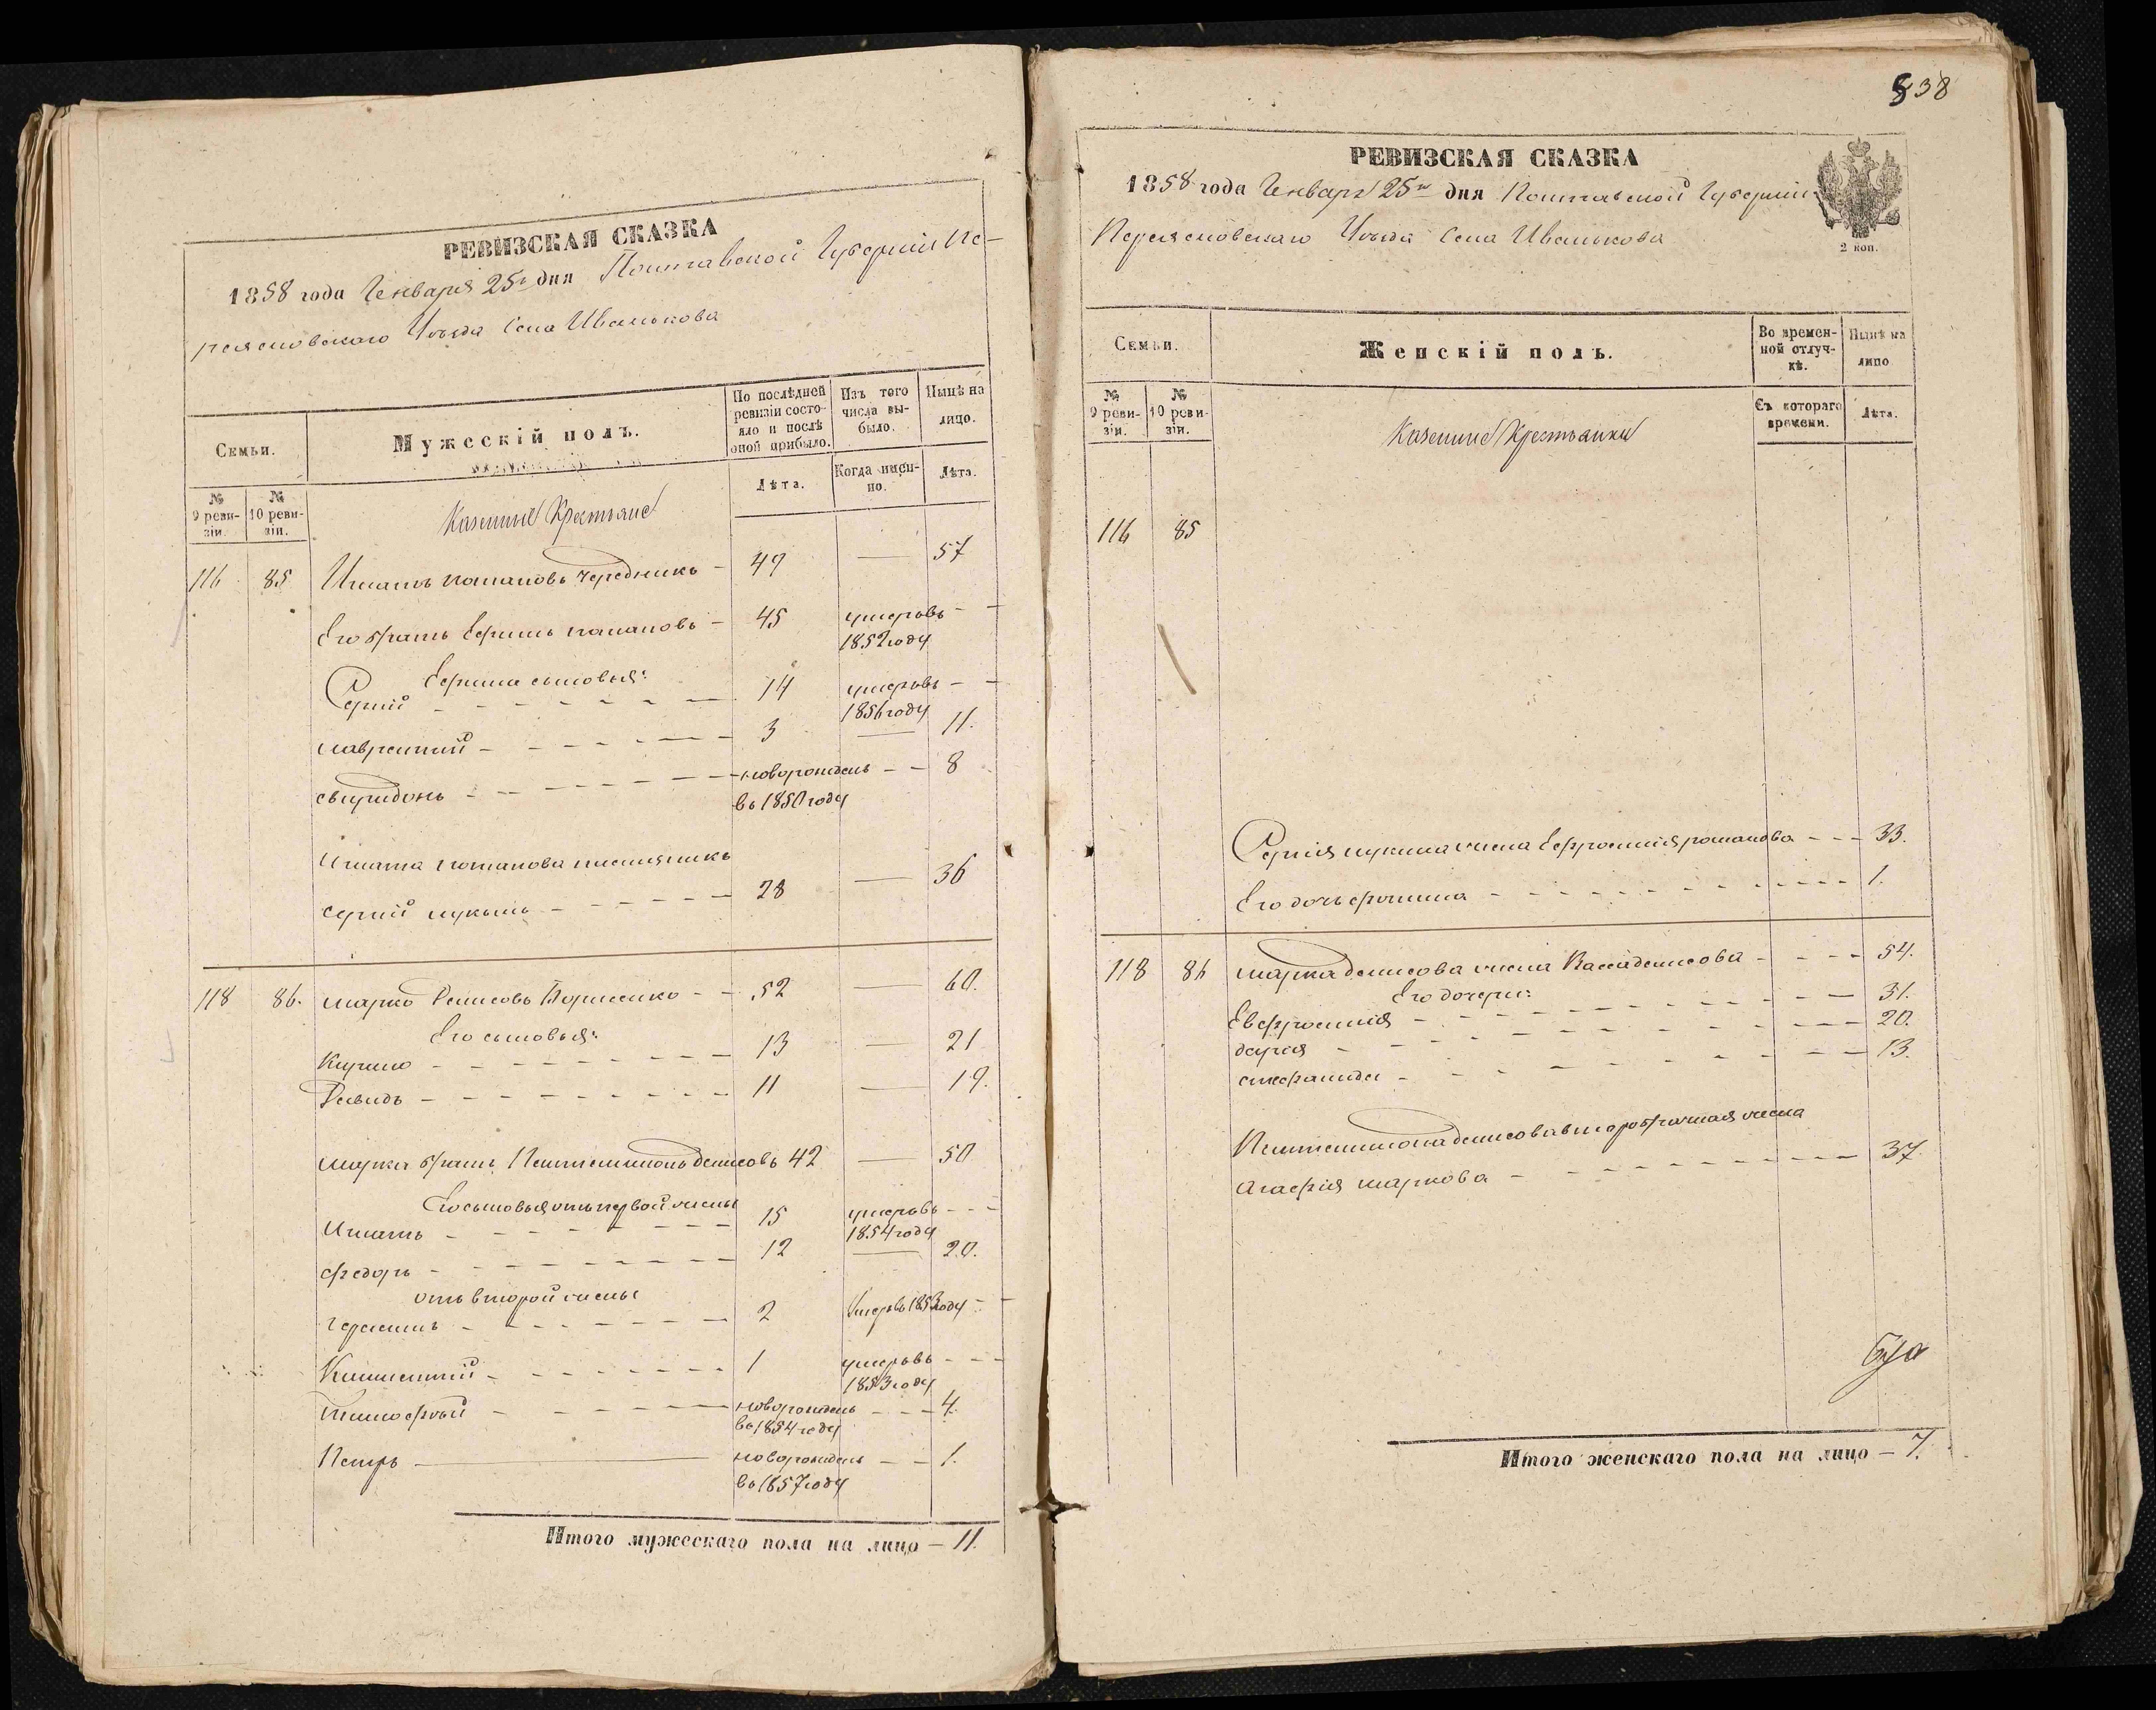 РЕВИЗСКАЯ СКАЗКА
1858 года Генваря 25го дня Полтавской Губерніи Пе-
реясловскаго Уѣзда Села Иванькова
Семьи.
Мужескій полъ.
По послѣдней ревизіи состо-яло и послѣ оной прибыло.
Изъ того числа вы-было.
Нынѣ на лицо.
№ 9 реви-зіи.
№ 10 реви-зіи.
Казенные Крестьяне
Лѣта.
Когда имен-но.
Лѣта.
116 85 Игнатъ потаповъ Чередникъ - 49 — 57
Его братъ Ефимъ потаповъ - 45 умеръ въ 1852 году
Ефима сыновья:
Сергий 14 умеръ въ 1856 году
лаврентий 3 — 11.
свиридонъ новорожденъ въ 1850 году 8
Игната потапова племянникъ
сергий лукинъ 28 — 36
118 86. марко Денисовъ Борисенко 52 — 60.
Его сыновья:
Кирило 13 — 21
Давидъ 11 — 19.
марка братъ Пантелимонъ денисовъ 42 — 50
Его сыновья отъ первой жены
Игнатъ 15 умеръ въ 1854 году
федоръ 12 — 20.
отъ второй жены
герасимъ 2 Умеръ въ 1853 году
Климентий 1 умеръ въ 1853 году
Тимофѣй новорожденъ въ 1854 году 4.
Петръ новорожденъ въ 1857 году 1.
Итого мужескаго пола на лицо — 11.
838
РЕВИЗСКАЯ СКАЗКА
1858 года Генваря 25го дня Полтавской Губерніи
Переясловскаго Уѣзда Села Иванькова
2 коп.
Семьи.
Женскій полъ.
Во времен-ной отлуч-кѣ.
Нынѣ на лицо
№ 9 реви-зіи.
№ 10 реви-зіи.
Казенные Крестьянки
Съ котораго времени.
Лѣта.
116 85
Сергия лукина жена Ефросиния романова 33.
Его дочь фотина 1.
118 86 марка денисова жена Васса денисова 54.
Его дочери:
Евфросиния 31.
дария 20.
стефанида 13.
Пантелимона денисова второбрачная жена
агафия маркова 37.
Итого женскаго пола на лицо — 7.